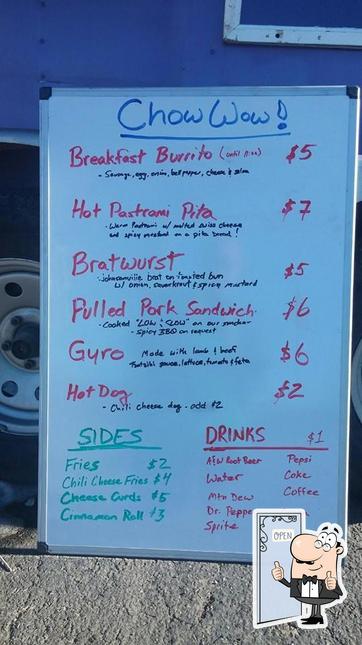 Chow Wow!
Breakfast Burrito (until 11:00) $5
- Sausage, egg, onion, bell pepper, cheese & salsa
Hot Pastrami Pita $7
- Warm Pastrami w/ melted swiss cheese
and spicy mustard on a pita bread!
Bratwurst $5
- Johnsonville brat on toasted bun
w/ onion, saverkraut & spicy mustard
Pulled Pork Sandwich $6
- Cooked "LOW & SLOW" on our smoker
- Spicy BBQ on request
Gyro Made with lamb & beef $6
Tzatziki sauce, lettuce, tomato & feta
Hot Dog $2
- Chili cheese dog - add $2
SIDES
Fries $2
Chili Cheese Fries $4
Cheese Curds $5
Cinnamon Roll $3
DRINKS $1
A&W Root Beer Pepsi
Water Coke
Mtn Dew Coffee
Dr. Pepper
Sprite
OPEN